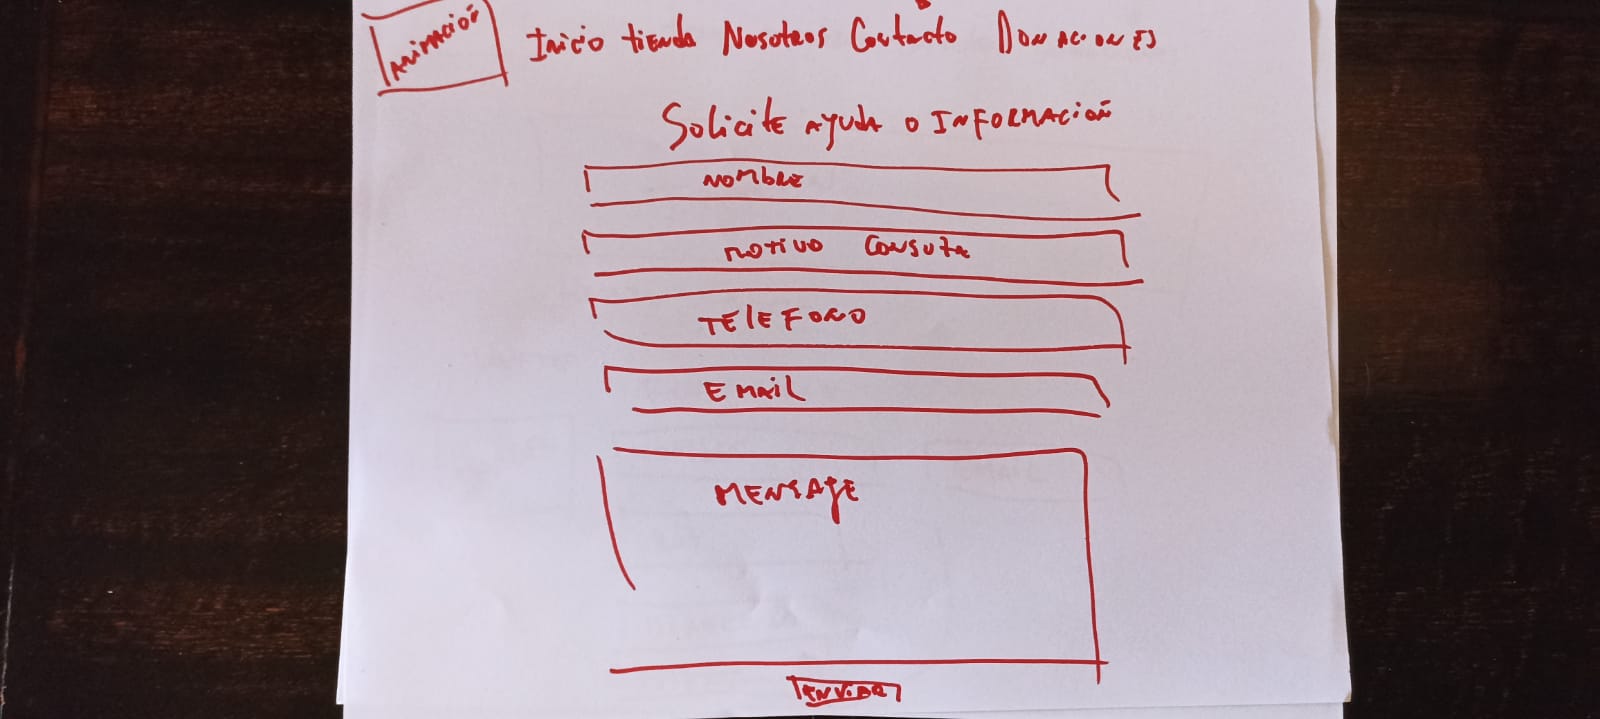 ANIMACIÓN
Inicio tienda Nosotros Contacto DONACIONES
Solicite AYUDA O INFORMACIÓN
NOMBRE
MOTIVO CONSULTA
TELEFONO
EMAIL
MENSAJE
ENVIAR